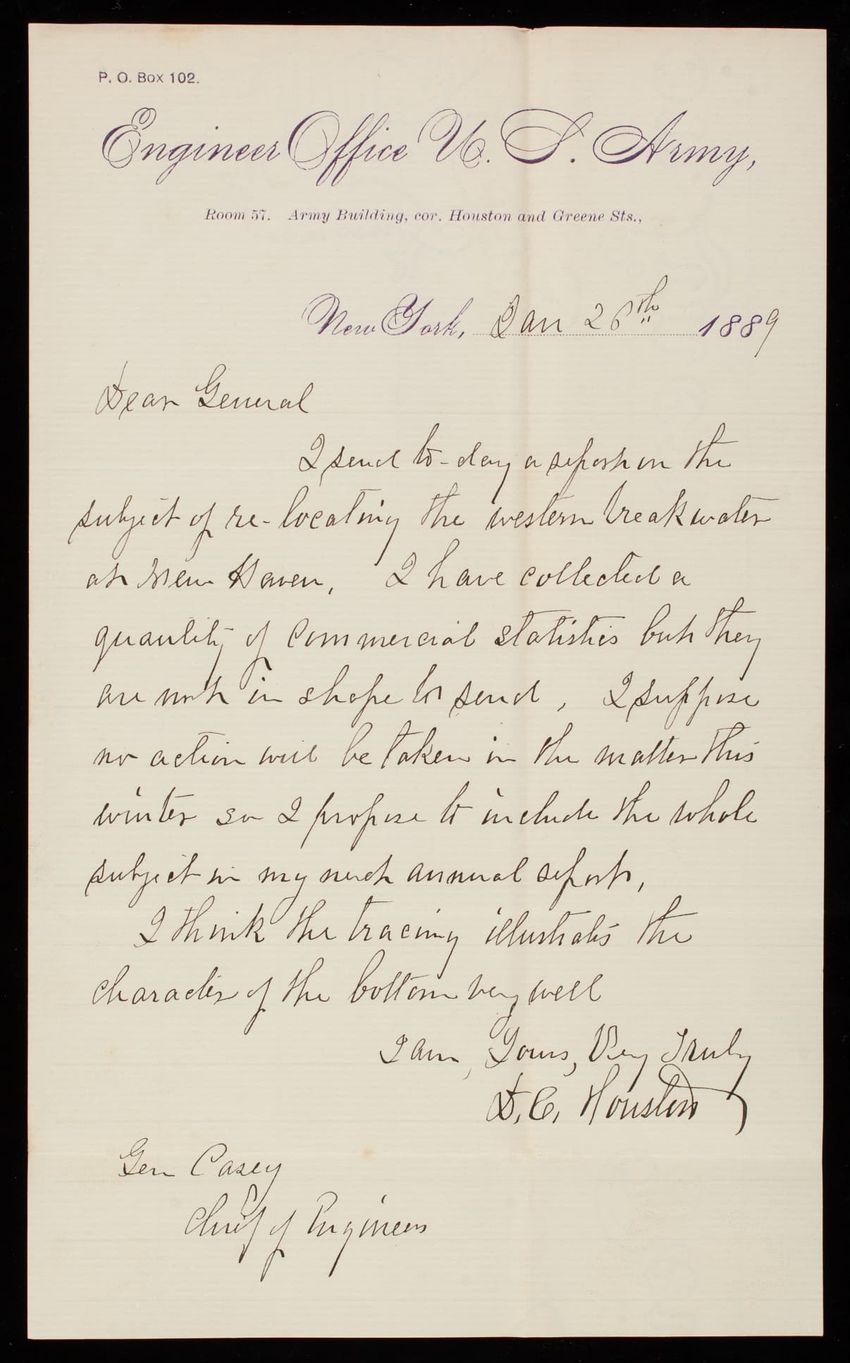 P. O. Box 102.
Engineer Office U. S. Army,
Room 57. Army Building, cor. Houston and Greene Sts.,
New York, Jan 26th 1889
Dear General
I send to-day a report on the
subject of re-locating the western breakwater
at New Haven. I have collected a
quantity of commercial statistics but they
are not in shape to send, I suppose
no action will be taken in the matter this
winter so I propose to include the whole
subject in my next annual report,
I think the tracing illustrates the
character of the bottom very well
I am, Yours, Very Truly
D. C. Houston
Gen Casey
Chief of Engineers